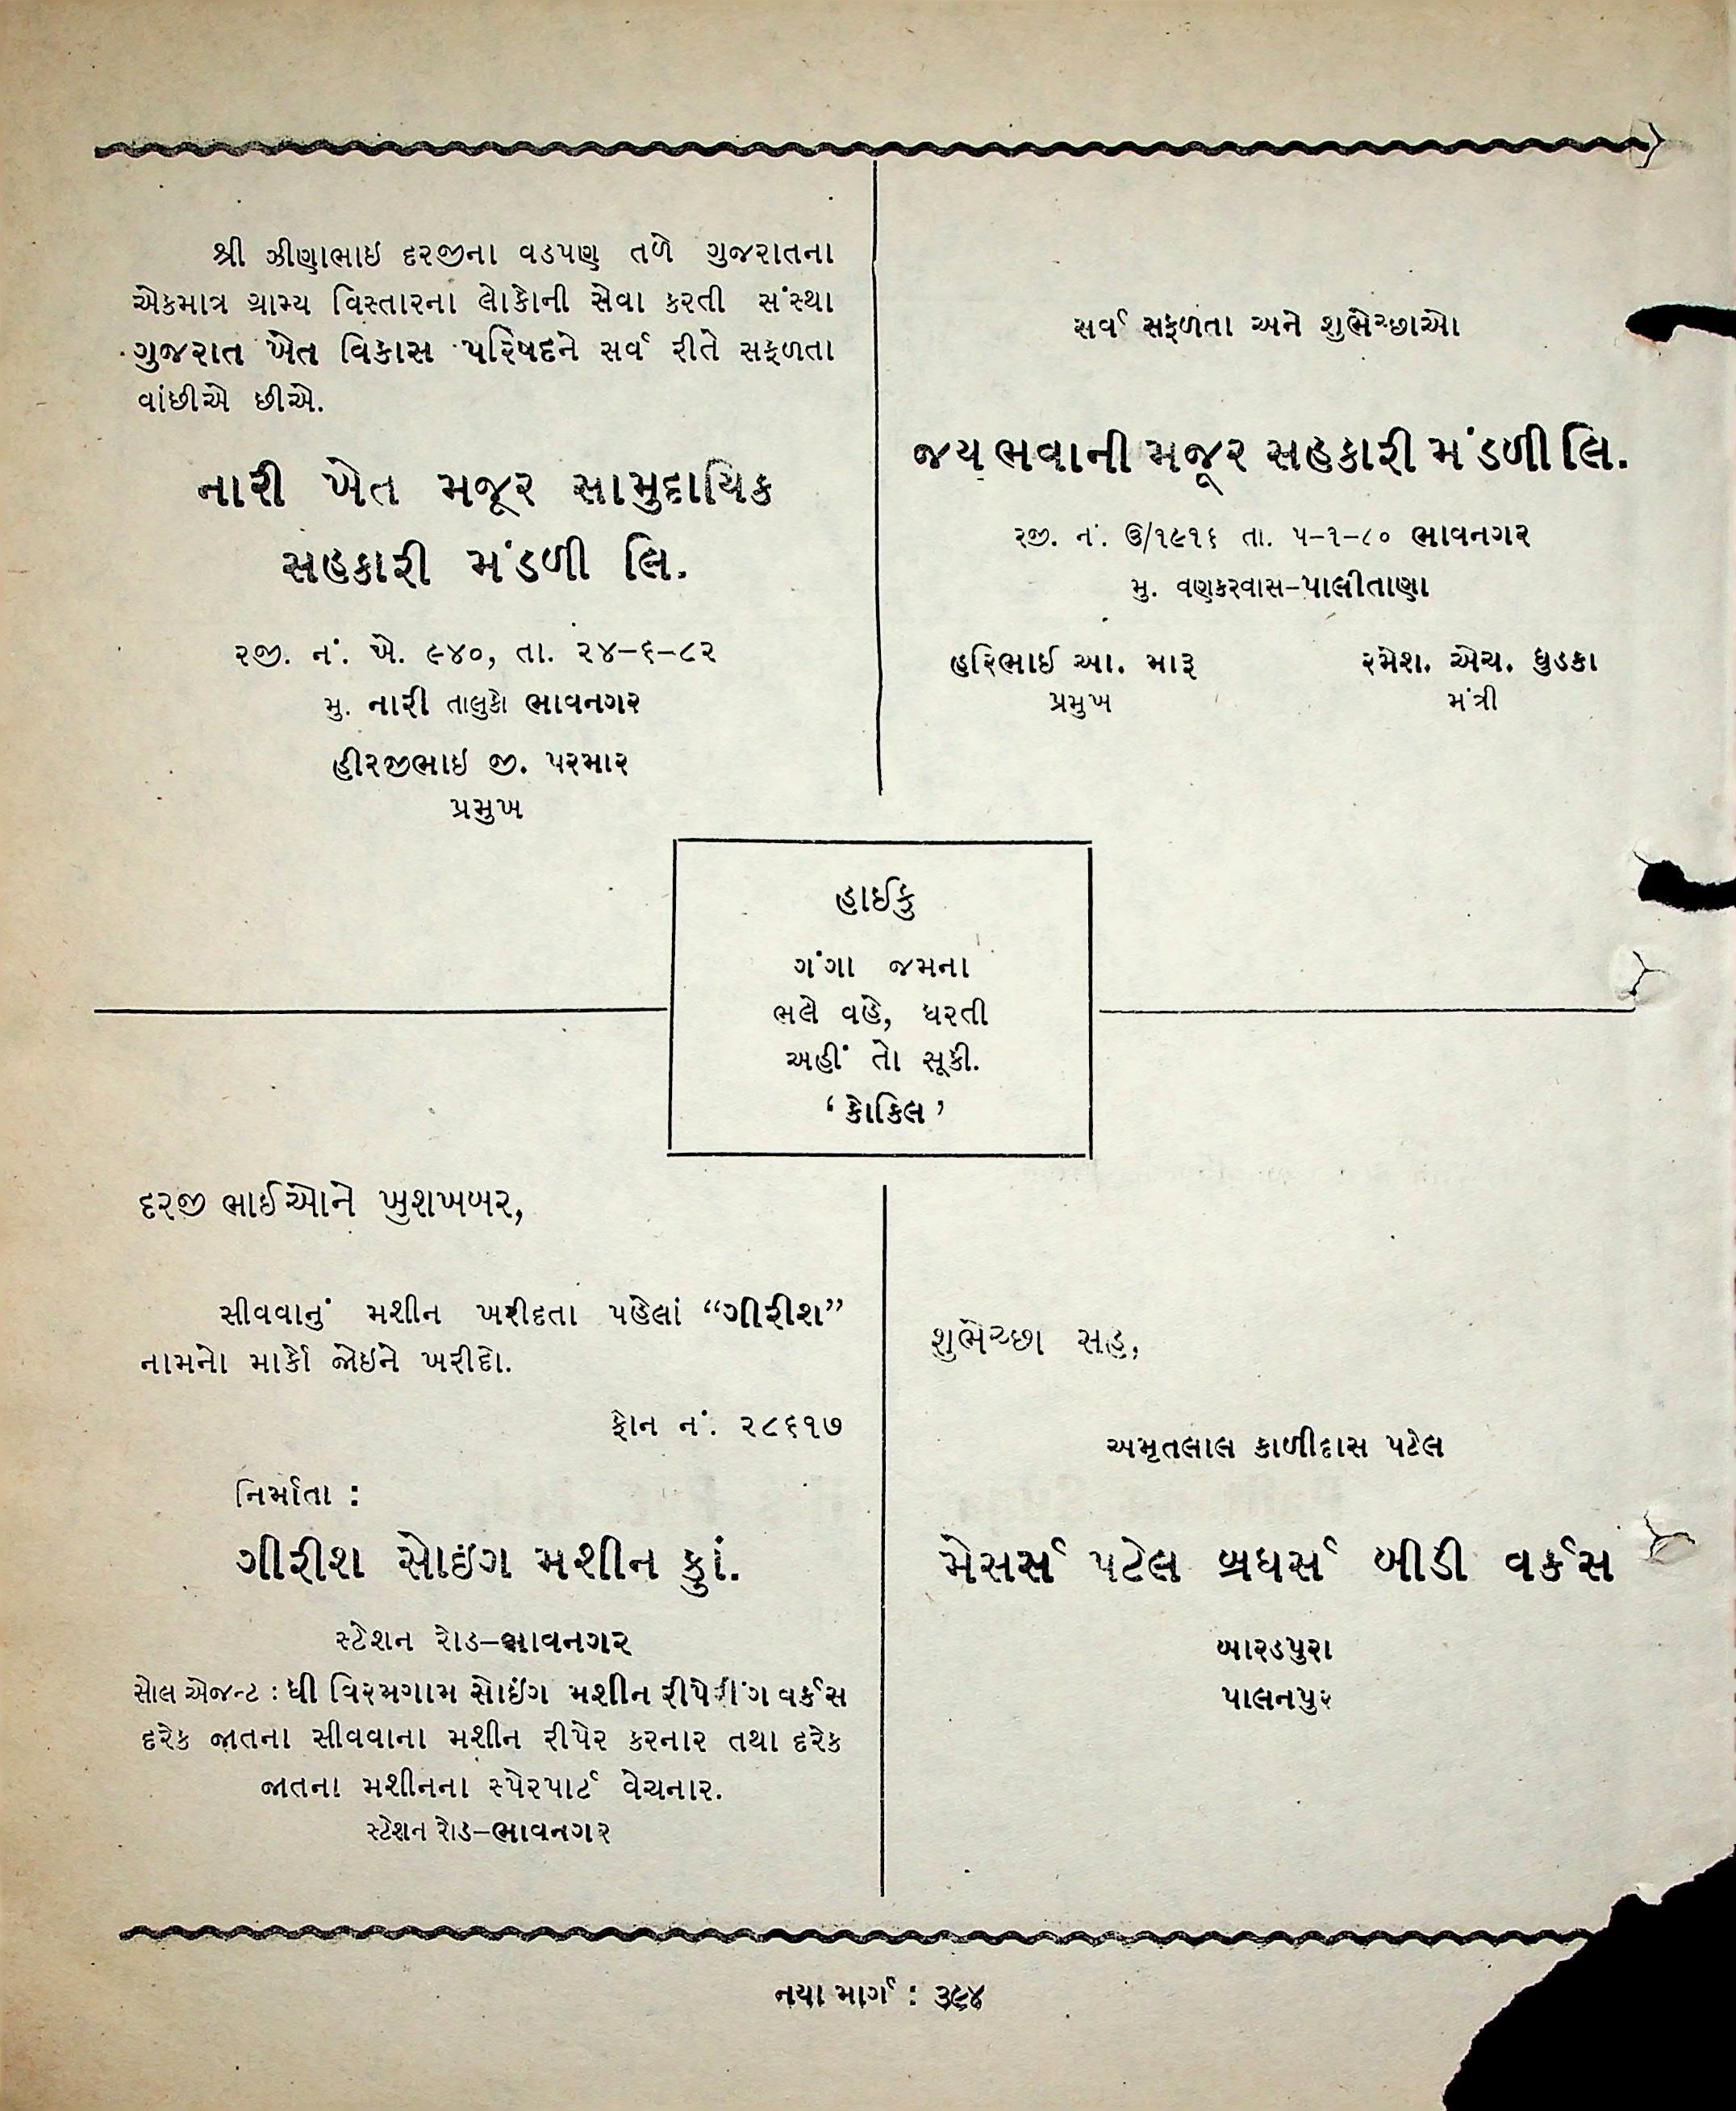 શ્રી ઝીણાભાઇ દરજીના વડપણ તળે ગુજરાતના
એકમાત્ર ગ્રામ્ય વિસ્તારના લોકોની સેવા કરતી સંસ્થા
ગુજરાત ખેત વિકાસ પરિષદને સર્વ રીતે સફળતા
વાંછીએ છીએ.
નારી ખેત મજૂર સામુદાયિક
સહકારી મંડળી લિ.
રજી. નં. ખે. ૯૪૦, તા. ૨૪-૬-૮૨
મુ. નારી તાલુકો ભાવનગર
હીરજીભાઇ જી. પરમાર
પ્રમુખ
સર્વ સફળતા અને શુભેચ્છાઓ
જય ભવાની મજૂર સહકારી મંડળી લિ.
રજી. નં. ઉ/૧૯૧૬ તા. ૫-૧-૮૦ ભાવનગર
મુ. વણકરવાસ-પાલીતાણા
હરિભાઈ આ. મારૂ રમેશ. એચ. ધુડકા
પ્રમુખ મંત્રી
હાઈકુ
ગંગા જમના
ભલે વહે, ધરતી
અહીં તો સૂકી.
‘ કોકિલ ’
દરજી ભાઈઓને ખુશખબર,
સીવવાનું મશીન ખરીદતા પહેલાં “ગીરીશ”
નામનો માર્કો જોઇને ખરીદો.
ફોન નં. ૨૮૬૧૭
નિર્માતા :
ગીરીશ સોઇંગ મશીન કુાં.
સ્ટેશન રોડ-ભાવનગર
સોલ એજન્ટ : ધી વિરમગામ સોઇંગ મશીન રીપેરીંગ વર્કસ
દરેક જાતના સીવવાના મશીન રીપેર કરનાર તથા દરેક
જાતના મશીનના સ્પેરપાર્ટ વેચનાર.
સ્ટેશન રોડ-ભાવનગર
શુભેચ્છા સહ,
અમૃતલાલ કાળીદાસ પટેલ
મેસર્સ પટેલ બ્રધર્સ બીડી વર્કસ
બારડપુરા
પાલનપુર
નયા માર્ગ : ૩૯૪